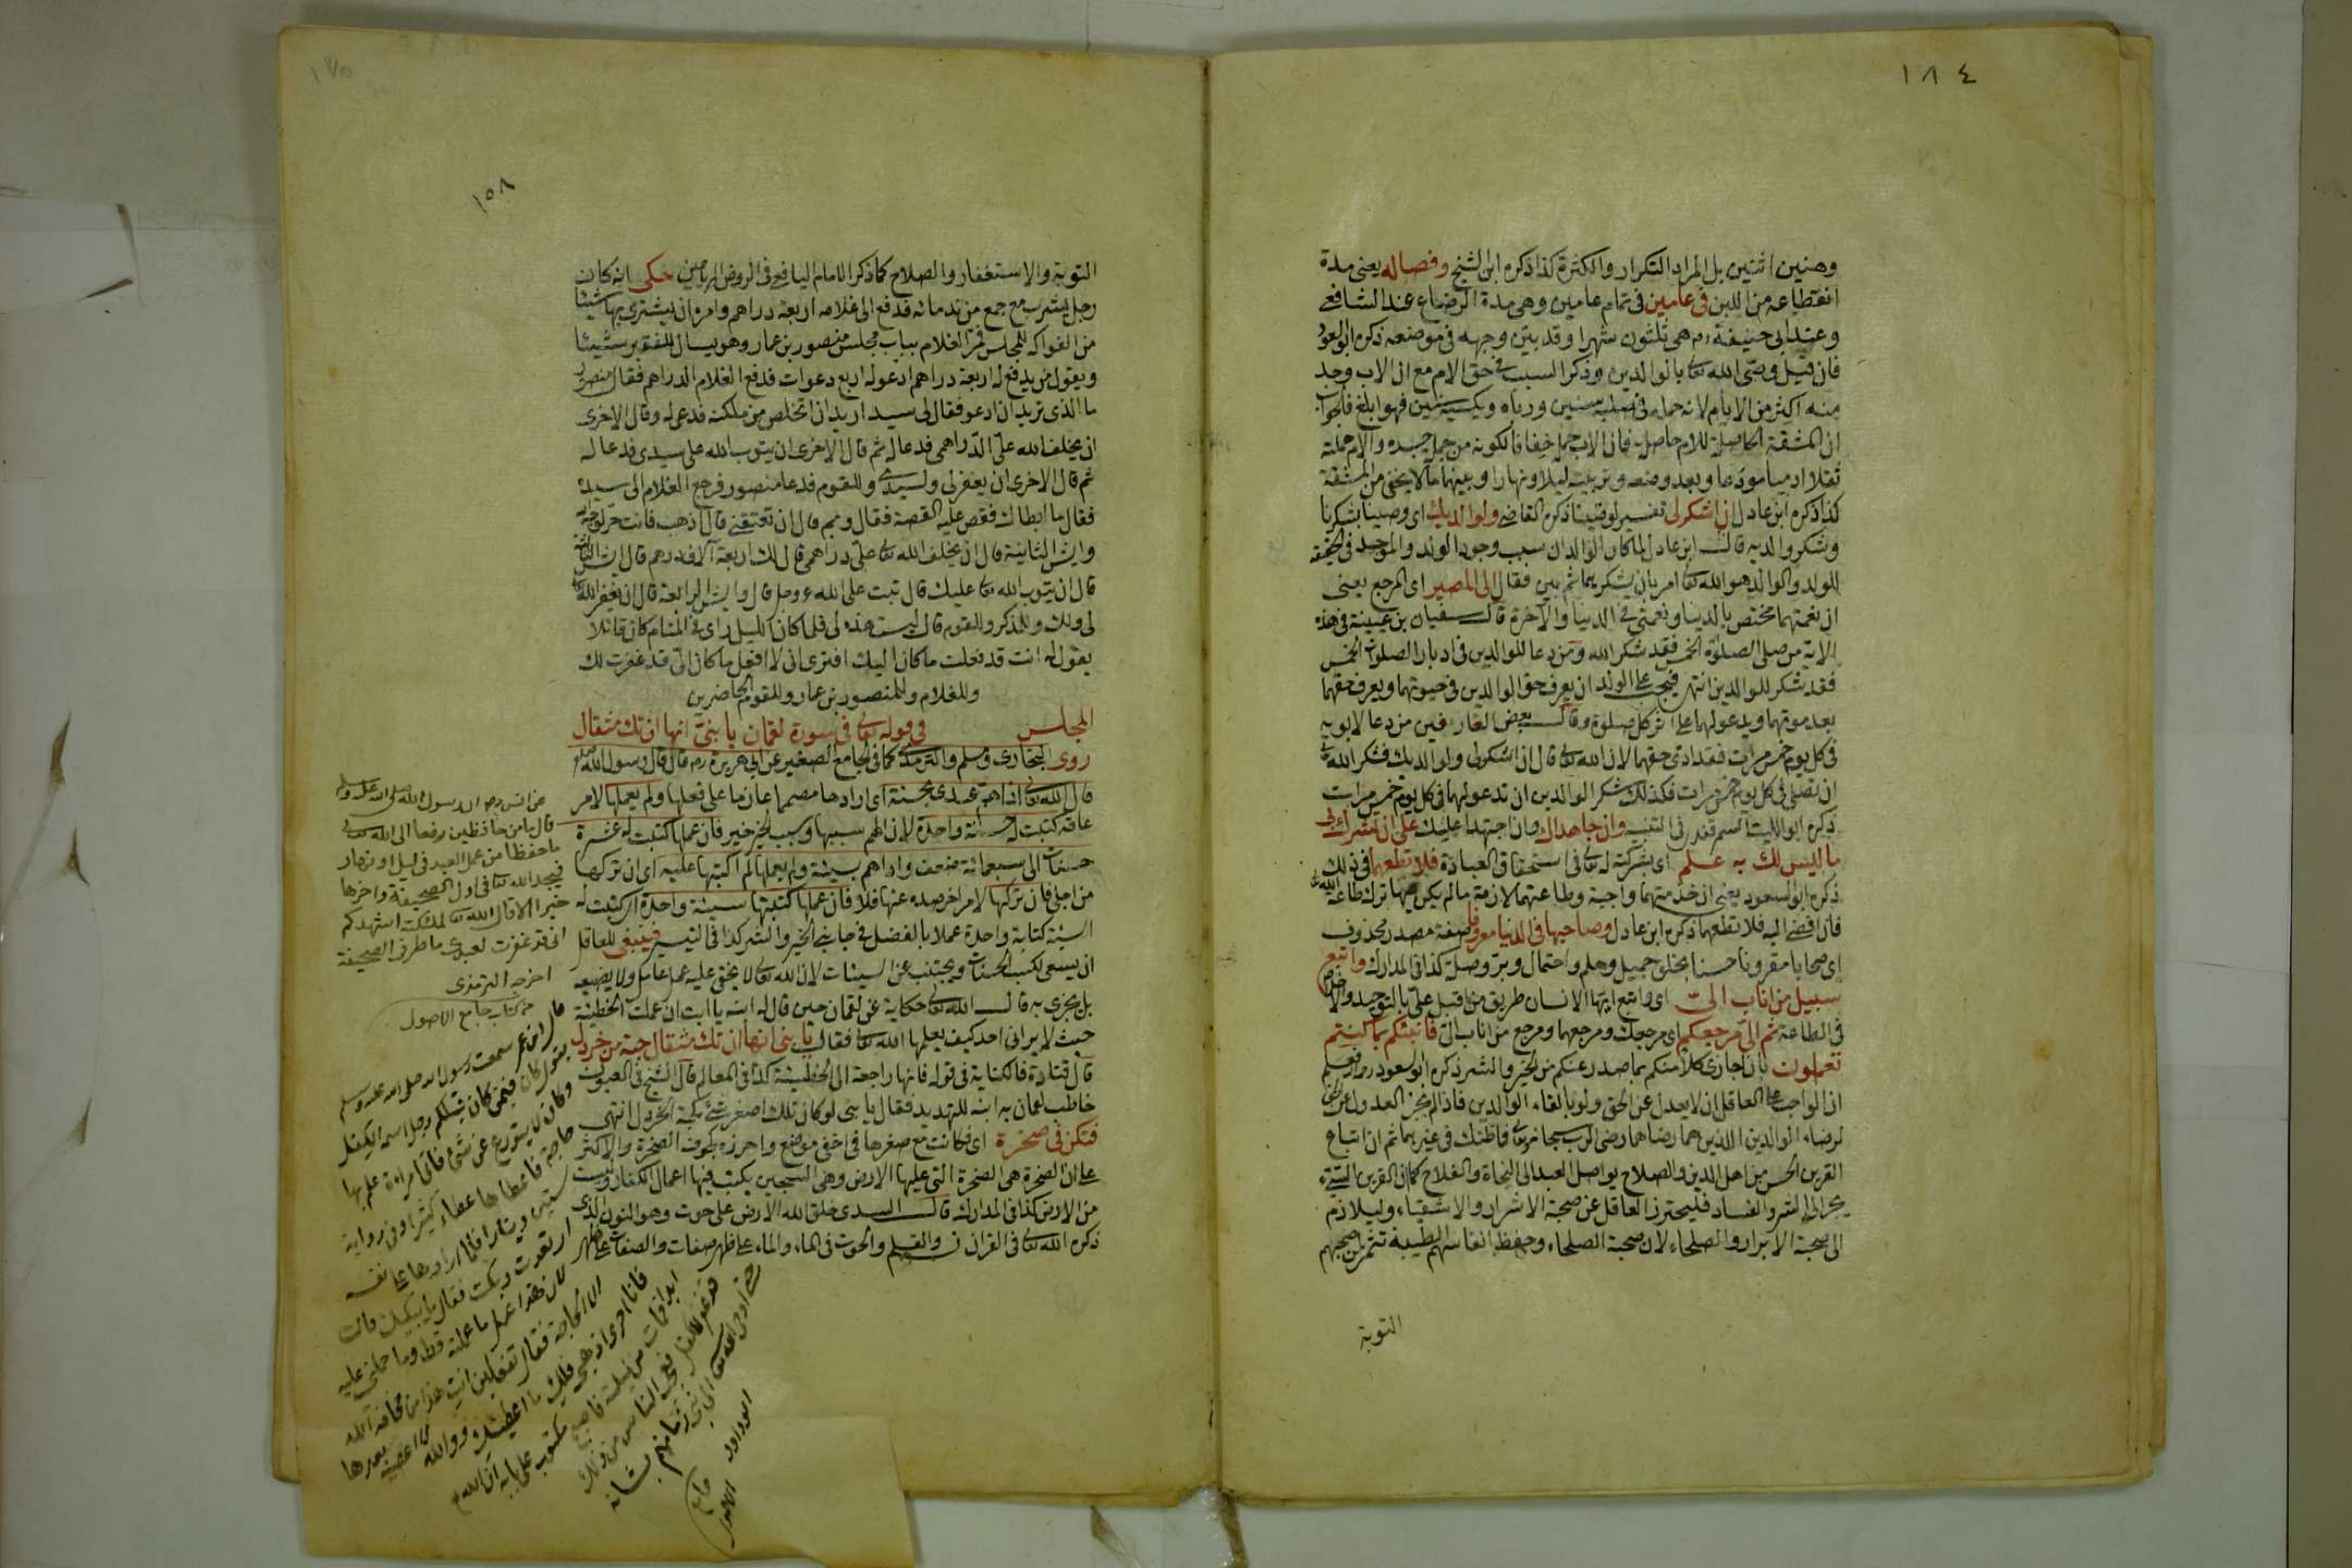 ١٨٤
وهنين اثنين بل المراد التكرار والكثرة كذا ذكره ابن الشيخ وفصاله يعنى مدة
انقطاعه من اللبن فى عامين فى تمام عامين وهى مدة الرضاع عند الشافعى
وعند ابى حنيفة ره هى ثلثون شهرا وقد بين وجهه فى موضعه ذكره ابو السعود
فان قيل وصى الله تعالى بالوالدين وذكر السبب فى حق الام مع ان الاب وجد
منه اكثر من الام لانه حمله فى صلبه سنين ورباه وبكسبه سنين فهو ابلغ فالجواب
ان المشقة الحاصلة للام حاصلة فان الاب حمل خفا فا لكونه من جملة جسده والام حملته
ثقلا ادميا مودعا وبعد وضعه وتربيته ليلا ونهارا وبينهما ما لا يخفى من المشقة
كذا ذكره ابن عادل ان اشكر لى تفسير لوصينا ذكره القاضى ولوالديك اى وصينا بشكرنا
وشكر والديه قال ابن عادل لما كان الوالدان سبب وجود الولد والموجد فى الحقيقة
للولد والوالد هو الله تعالى امر بان يشكر بهما ثم بين فقال الى المصير اى المرجع يعنى
ان نعمتهما مختص بالدنيا ونعمتى فى الدنيا والاخرة قال سفيان بن عيينة فى هذه
الاية من صلى الصلوة الخمس فقد شكر الله ومن دعا للوالدين فى ادبار الصلوات الخمس
فقد شكر للوالدين انتهى فيجب على الولد ان يعرف حق الوالدين فى حيوتهما ويعرف حقهما
بعد موتهما ويدعو لهما على اثر كل صلوة وقال بعض العارفين من دعا لابويه
فى كل يوم خمس مرات فقد ادى حقهما لان الله تعالى قال ان اشكر لى ولوالديك فشكر الله تعالى
ان تصلى فى كل يوم خمس مرات فكذلك شكر الوالدين ان تدعو لهما فى كل يوم خمس مرات
ذكره ابو الليث السمرقندى فى التنبيه وان جاهداك وان اجتهدا عليك على ان تشرك بى
ما ليس لك به علم اى بشركته له تعالى فى استحقاق العبادة فلا تطعهما فى ذلك
ذكره ابو السعود يعنى ان خدمتهما واجبة وطاعتهما لازمة ما لم يكن فيها ترك طاعة الله تعالى
فان افضى اليه فلا تطعهما ذكره ابن عادل وصاحبهما فى الدنيا معروفا صفة مصدر محذوف
اى صحابا مقرونا حسنا بخلق جميل وحلم واحتمال وبر وصلة كذا فى المدارك واتبع
سبيل من اناب الى اى واتبع ايها الانسان طريق من اقبل على بالتوحيد والاخلاص
فى الطاعة ثم الى مرجعكم اى مرجعك ومرجعهما ومرجع من اناب الى فانبئكم بما كنتم
تعملون بان اجازى كلا منكم بما صدر عنكم من الخير والشر ذكره ابو السعود
ان الواجب على العاقل ان لا يعدل عن الحق ولو بالقاء الوالدين فاذا لم يجز العدول عن الحق
لرضاء الوالدين اللذين هما رضاهما رضى الرب سبحانه وتعالى فما ظنك فى غيرهما ثم ان اتباع
القرين الحسن من اهل الدين والصلاح يواصل العبد الى النجاة والفلاح كما ان القرين السيئ
يجر الى الشر والفساد فليحترز العاقل عن صحبة الاشرار والاشقياء وليلازم
الى صحبة الابرار والصلحاء لان صحبة الصلحاء وحفظ انفاسهم الطيبة تثمر لمن صحبهم
التوبة
١٥٨
التوبة والاستغفار والصلاح كما ذكر الامام اليافعى فى الروض الرياحين حكى انه كان
رجل يشرب مع جمع من ندمائه فدفع الى غلامه اربعة دراهم وامره ان يشترى بها شيئا
من الفواكه للمجلس فمر الغلام بباب مجلس منصور بن عمار وهو يسال للفقير شيئا
ويقول من يدفع له اربعة دراهم ادعو له اربع دعوات فدفع الغلام الدراهم فقال منصور
ما الذى تريد ان ادعو فقال لى سيد اريد ان اتخلص من ملكته فدعى له وقال الاخرى
ان يخلف الله على الدراهمى فدعا له ثم قال الاخرى ان يتوب الله على سيدى فدعا له
ثم قال الاخرى ان يغفر لى ولسيدى وللقوم فدعا منصور فرجع الغلام الى سيده
فقال ما ابطاك فقص عليه القصة فقال وبم قال ان تعتقنى قال اذهب فانت حر لوجه الله
وايش الثانية قال ان يخلف الله تعالى على دراهمى قال لك اربعة آلاف درهم قال ايش الثالثة
قال ان يتوب الله تعالى عليك قال تبت على الله عز وجل قال وايش الرابعة قال ان يغفر الله تعالى
لى ولك وللمذكر وللقوم قال ليست هذه لى فلما كان الليل راى فى المنام كان قائلا
يقول له انت قد فعلت ما كان اليك افترى انى لا افعل ما كان الى قد غفرت لك
وللغلام وللمنصور بن عمار وللقوم الحاضرين
المجلس فى قوله تعالى فى سورة لقمان يا بنى انها ان تك مثقال
روى البخارى ومسلم والترمذى كما فى الجامع الصغير عن ابى هريرة رض قال قال رسول الله صلعم
قال الله تعالى اذا هم عبدى بحسنة اى ارادها مصمما عازما على فعلها ولم يعملها لامر
عاقه كتبت له حسنة واحدة لان الهم سببها وسبب الخير خير فان عملها كتبت له عشرة
حسنات الى سبعمائة ضعف واذا هم بسيئة ولم يعملها لم اكتبها عليه اى ان تركها
من اجلى فان تركها لامر اخر صده عنها فلا فان عملها كتبتها سيئة واحدة اى كتبت له
السيئة كتابة واحدة عملا بالفضل فى جانبى الخير والشر كذا فى التيسير فينبغى للعاقل
ان يسعى لكسب الحسنات ويجتنب عن السيئات لان الله تعالى لا يخفى عليه عمل عامل ولا يضيعه
بل يجزى به قال الله تعالى حكاية عن لقمان حين قال له ابنه يا ابت ان عملت الخطيئة
حيث لا يرانى احد كيف يعلمها الله تعالى فقال يا بنى انها ان تك مثقال حبة من خردل
قال قتادة فالكناية فى قوله فانها راجعة الى الخطيئة كذا فى المعالم قال الشيخ فى العيون
خاطب لقمان به ابنه للتهديد فقال يا بنى لو كان تلك اصغر شئ كحبة الخردل انتهى
فتكن فى صخرة اى فكانت مع صغرها فى اخفى موضع واحرزه كجوف الصخرة والاكثر
على ان الصخرة هى الصخرة التى عليها الارض وهى السجين يكتب فيها اعمال الكفار وليست
من الارض كذا فى المدارك قال السدى خلق الله الارض على حوت وهو النون الذى
ذكره الله تعالى فى القران ن والقلم والحوت فى الماء والماء على ظهر صفات والصفات على ظهر
عن انس رض ان رسول الله صلى الله عليه وسلم
قال ما من حافظين رفعا الى الله تعالى
ما حفظا من عمل العبد فى ليل او نهار
فيجد الله تعالى فى اول الصحيفة واخرها
خيرا الا قال الله تعالى لملئكته اشهدكم
انى قد غفرت لعبدى ما طرفى الصحيفة
اخرجه الترمذى
من كتاب جامع الاصول
قال ابن عمر سمعت رسول الله صلى الله عليه وسلم
يقول كان فيمن كان قبلكم رجل اسمه الكفل
وكان لا يتورع عن شئ فاتى امراة علم بها
حاجة فاعطاها عطاء كثيرا وفى رواية
ستين دينارا فلما ارادها على نفسه
ارتعدت وبكت فقال ما يبكيك قالت
لان هذا عمل ما عملته قط وما حملنى عليه
الا الحاجة فقال تفعلين انت هذا من مخافة الله
فانا احرى اذهبى فلك ما اعطيتك ووالله لا اعصيه بعدها
ابدا فمات من ليلته فاصبح مكتوب على بابه ان الله
قد غفر للكفل فعجب الناس من ذلك